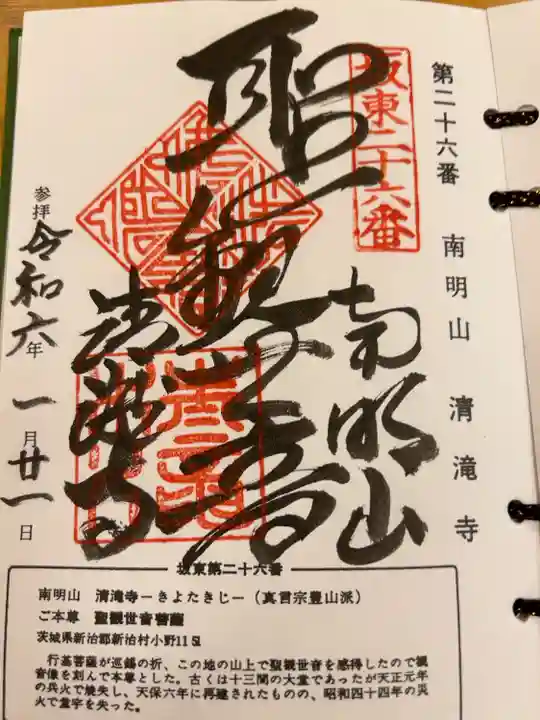 第二十六番 南明山 清滝寺
坂東二十六番
南明山
聖観世音
清滝寺
参拝 令和六年一月廿一日
坂東第二十六番
南明山 清滝寺ーきよたきじー(真言宗豊山派)
ご本尊 聖観世音菩薩
茨城県新治郡新治村小野1151
行基菩薩が巡錫の折、この地の山上で聖観世音を感得したので観
音像を刻んで本尊とした。古くは十三間の大堂であったが天正元年
の兵火で焼失し、天保六年に再建されたものの、昭和四十四年の災
火で堂宇を失った。